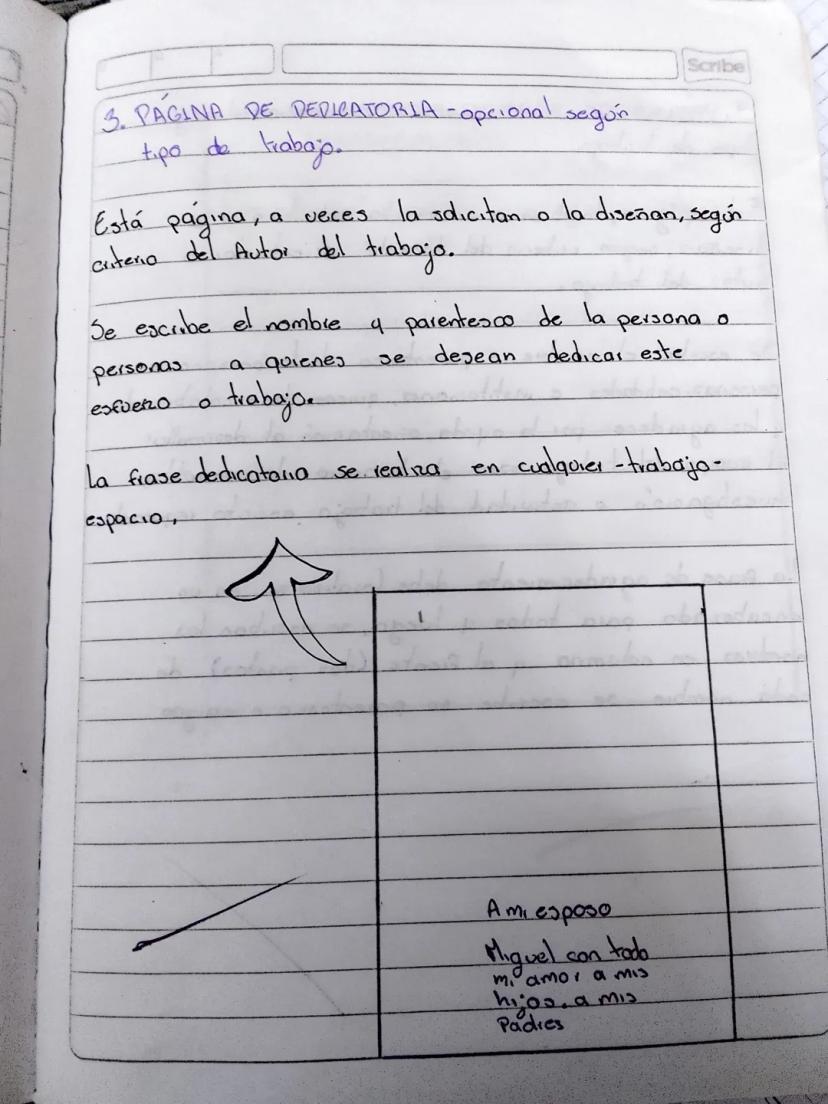 Scribe
3. PÁGINA DE DEDICATORIA - opcional según
tipo de trabajo.
Está página, a veces la solicitan o la diseñan, según
criterio del Autor del trabajo.
Se escribe el nombre y parentesco de la persona o
personas a quienes se desean dedicar este
esfuerzo o trabajo.
La frase dedicatoria se realiza en cualquier - trabajo -
espacio,
A mi esposo
Miguel con todo
mi amor a mis
hijos. a mis
Padres